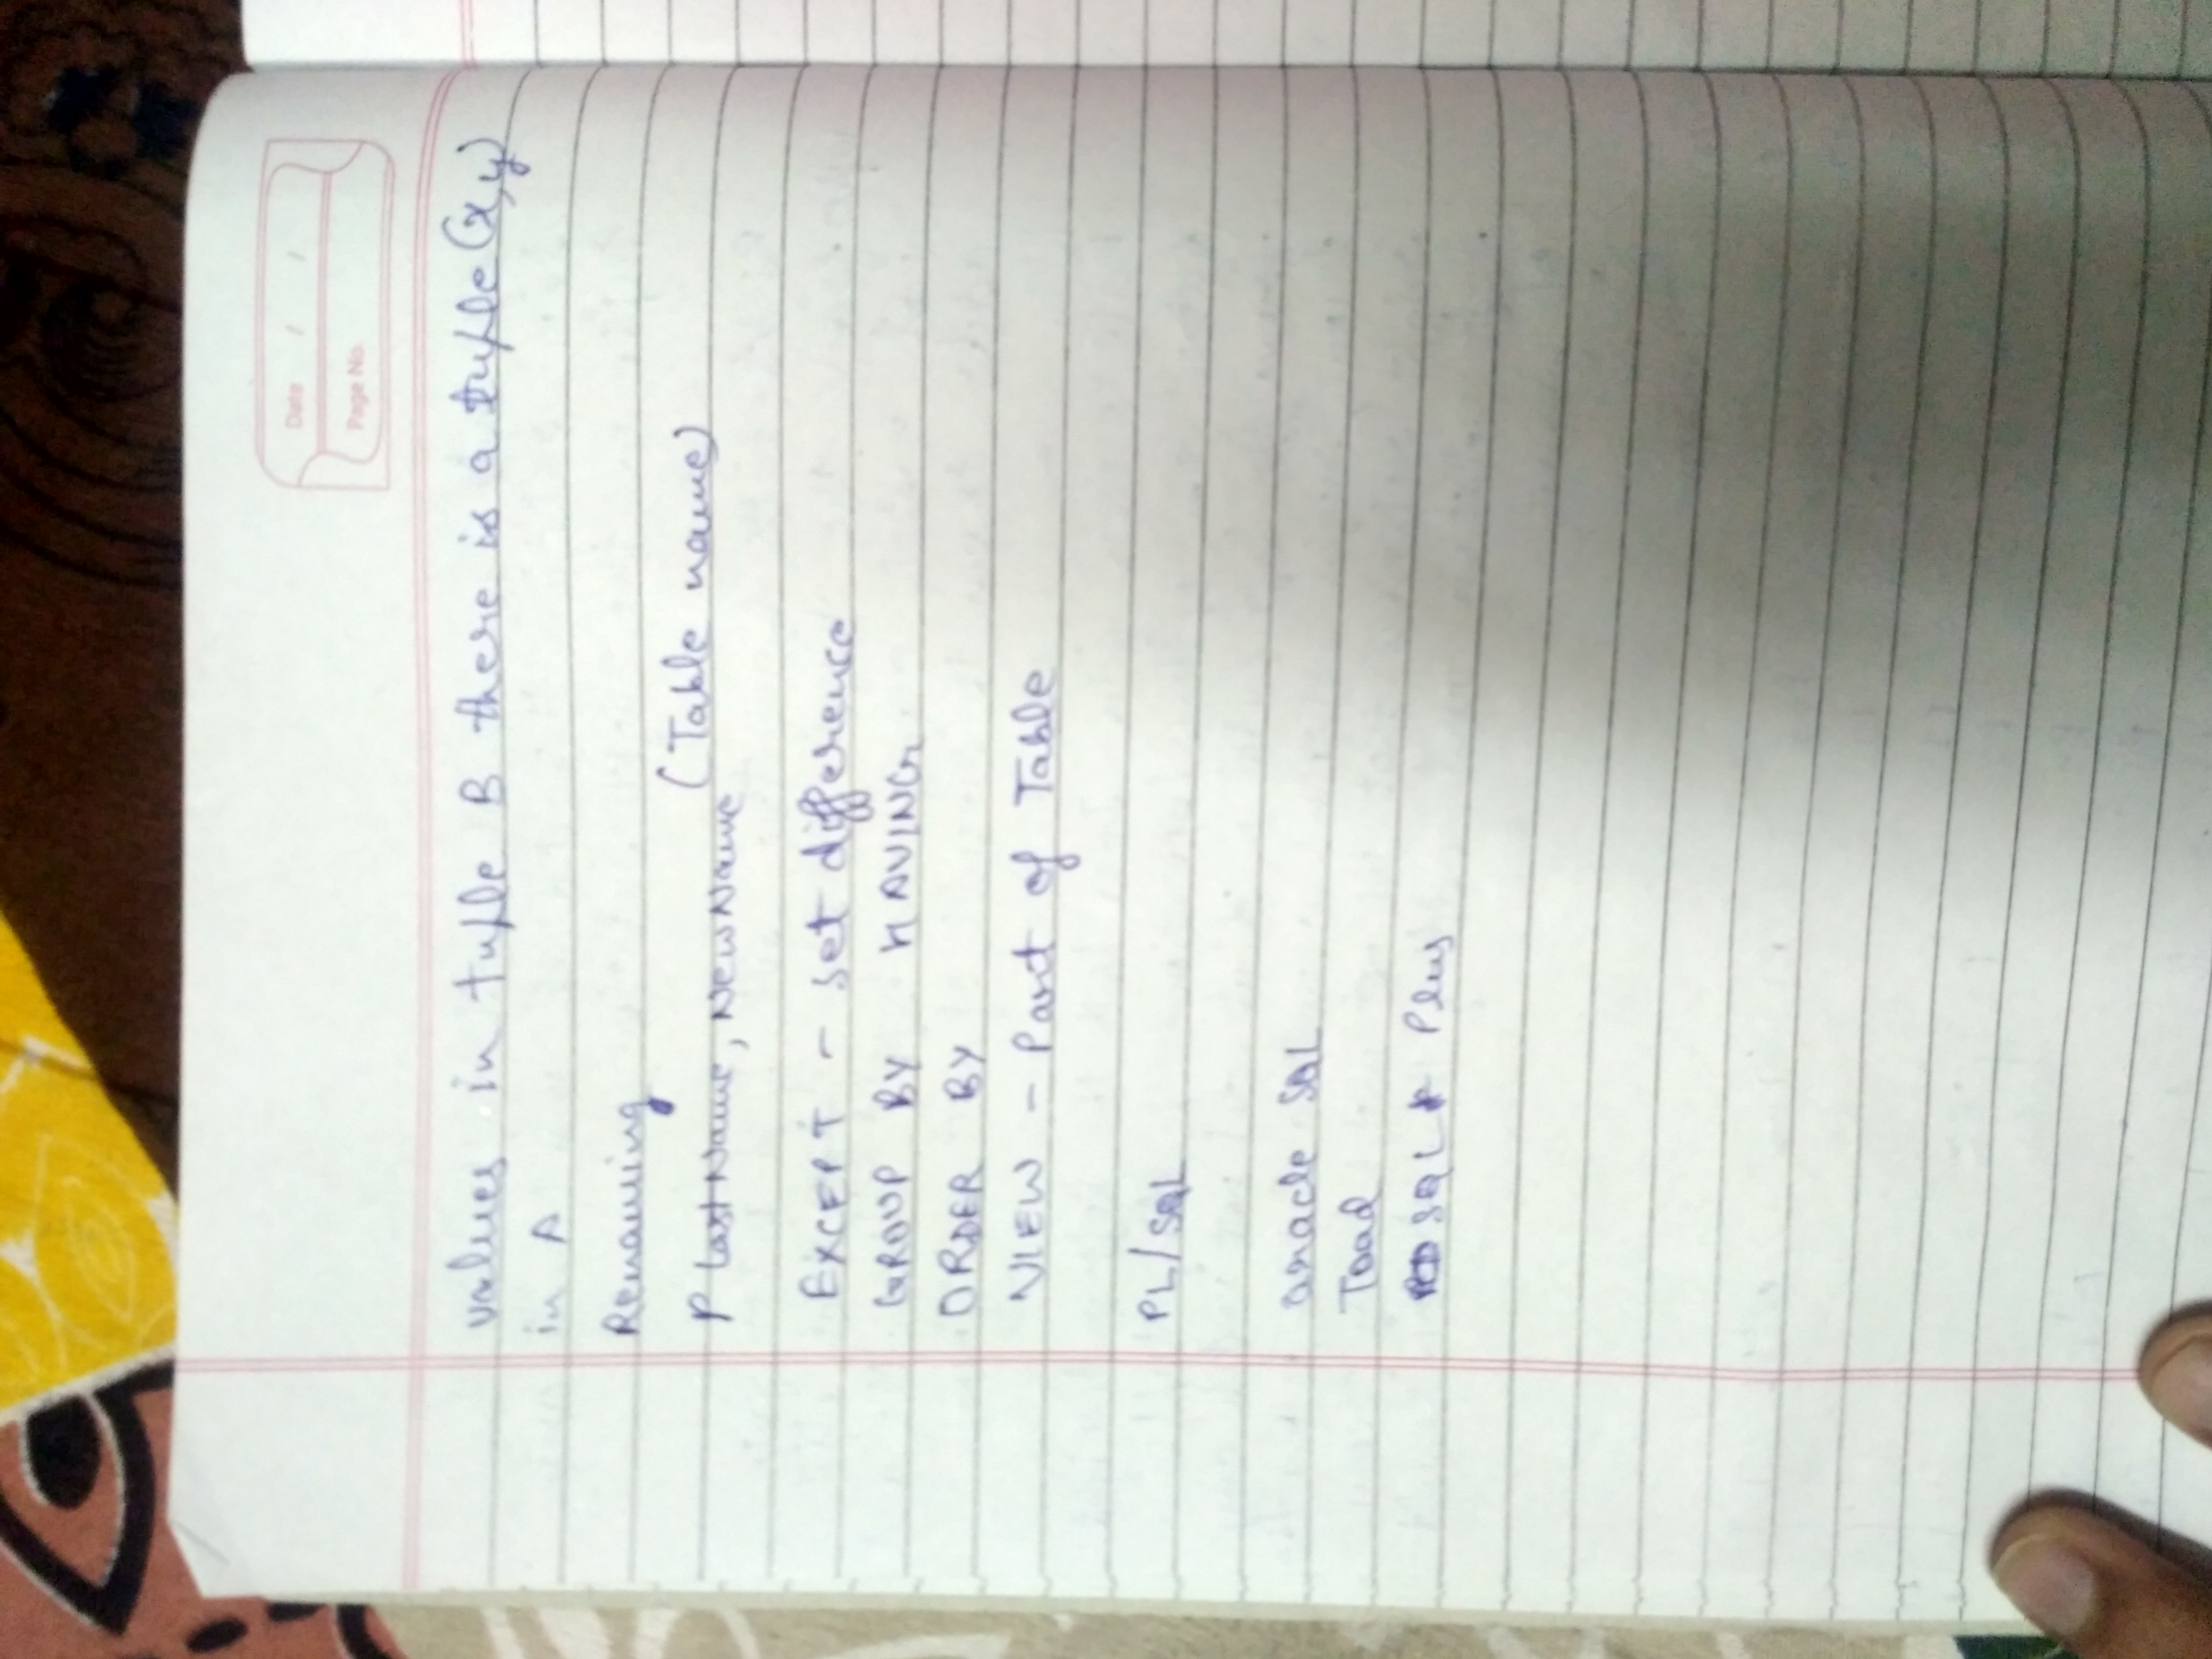 Date / /
Page No.
values in tuple B there is a tuple (x,y)
in A
Renaming
ρ LastName, NewName (Table name)
EXCEPT - set difference
GROUP BY HAVING
ORDER BY
VIEW - Part of Table
PL/SQL
Oracle SQL
Toad
SQL Plus